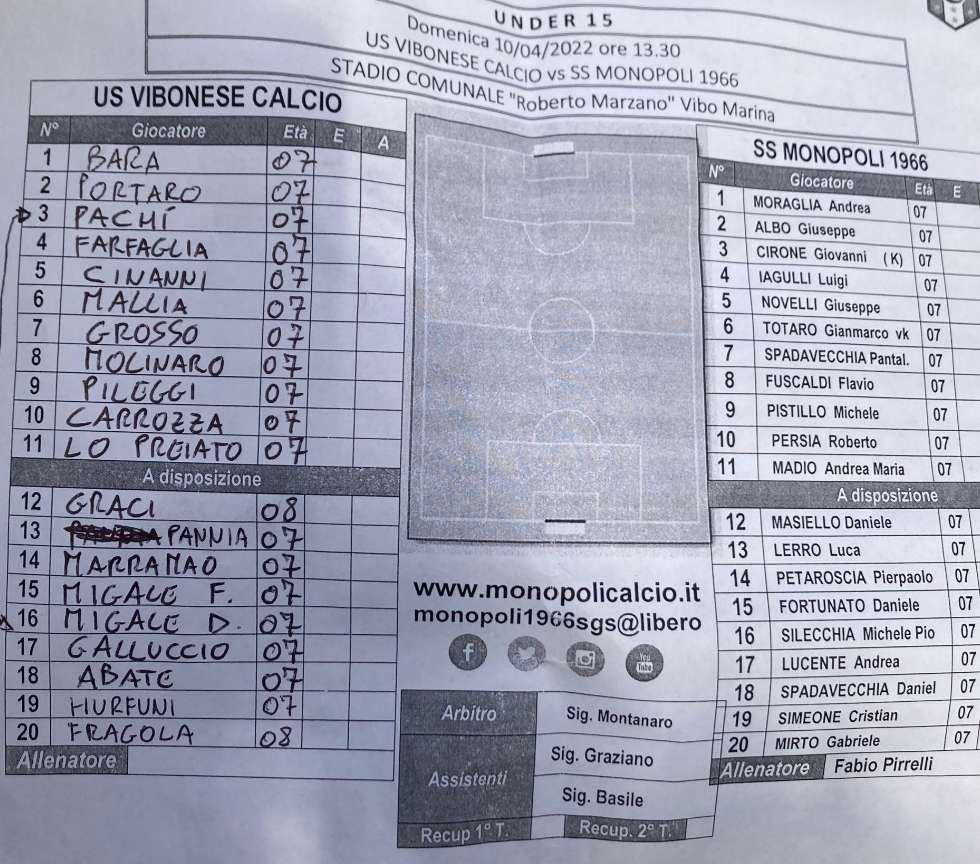 UNDER 15
Domenica 10/04/2022 ore 13.30
US VIBONESE CALCIO vs SS MONOPOLI 1966
STADIO COMUNALE "Roberto Marzano" Vibo Marina
US VIBONESE CALCIO
N° Giocatore Età E A
1 BARA 07
2 PORTARO 07
3 PACHÍ 07
4 FARFAGLIA 07
5 CINANNI 07
6 MALLIA 07
7 GROSSO 07
8 MOLINARO 07
9 PILEGGI 07
10 CARROZZA 07
11 LO PREIATO 07
A disposizione
12 GRACI 08
13 PANNIA 07
14 MARRAMAO 07
15 MIGALE F. 07
16 MIGALE D. 07
17 GALLUCCIO 07
18 ABATE 07
19 HURFUNI 07
20 FRAGOLA 08
Allenatore
www.monopolicalcio.it
monopoli1966sgs@libero
You Tube
Arbitro Sig. Montanaro
Assistenti Sig. Graziano
Sig. Basile
Recup 1° T. Recup. 2° T.
SS MONOPOLI 1966
N° Giocatore Età E
1 MORAGLIA Andrea 07
2 ALBO Giuseppe 07
3 CIRONE Giovanni (K) 07
4 IAGULLI Luigi 07
5 NOVELLI Giuseppe 07
6 TOTARO Gianmarco vk 07
7 SPADAVECCHIA Pantal. 07
8 FUSCALDI Flavio 07
9 PISTILLO Michele 07
10 PERSIA Roberto 07
11 MADIO Andrea Maria 07
A disposizione
12 MASIELLO Daniele 07
13 LERRO Luca 07
14 PETAROSCIA Pierpaolo 07
15 FORTUNATO Daniele 07
16 SILECCHIA Michele Pio 07
17 LUCENTE Andrea 07
18 SPADAVECCHIA Daniel 07
19 SIMEONE Cristian 07
20 MIRTO Gabriele 07
Allenatore Fabio Pirrelli